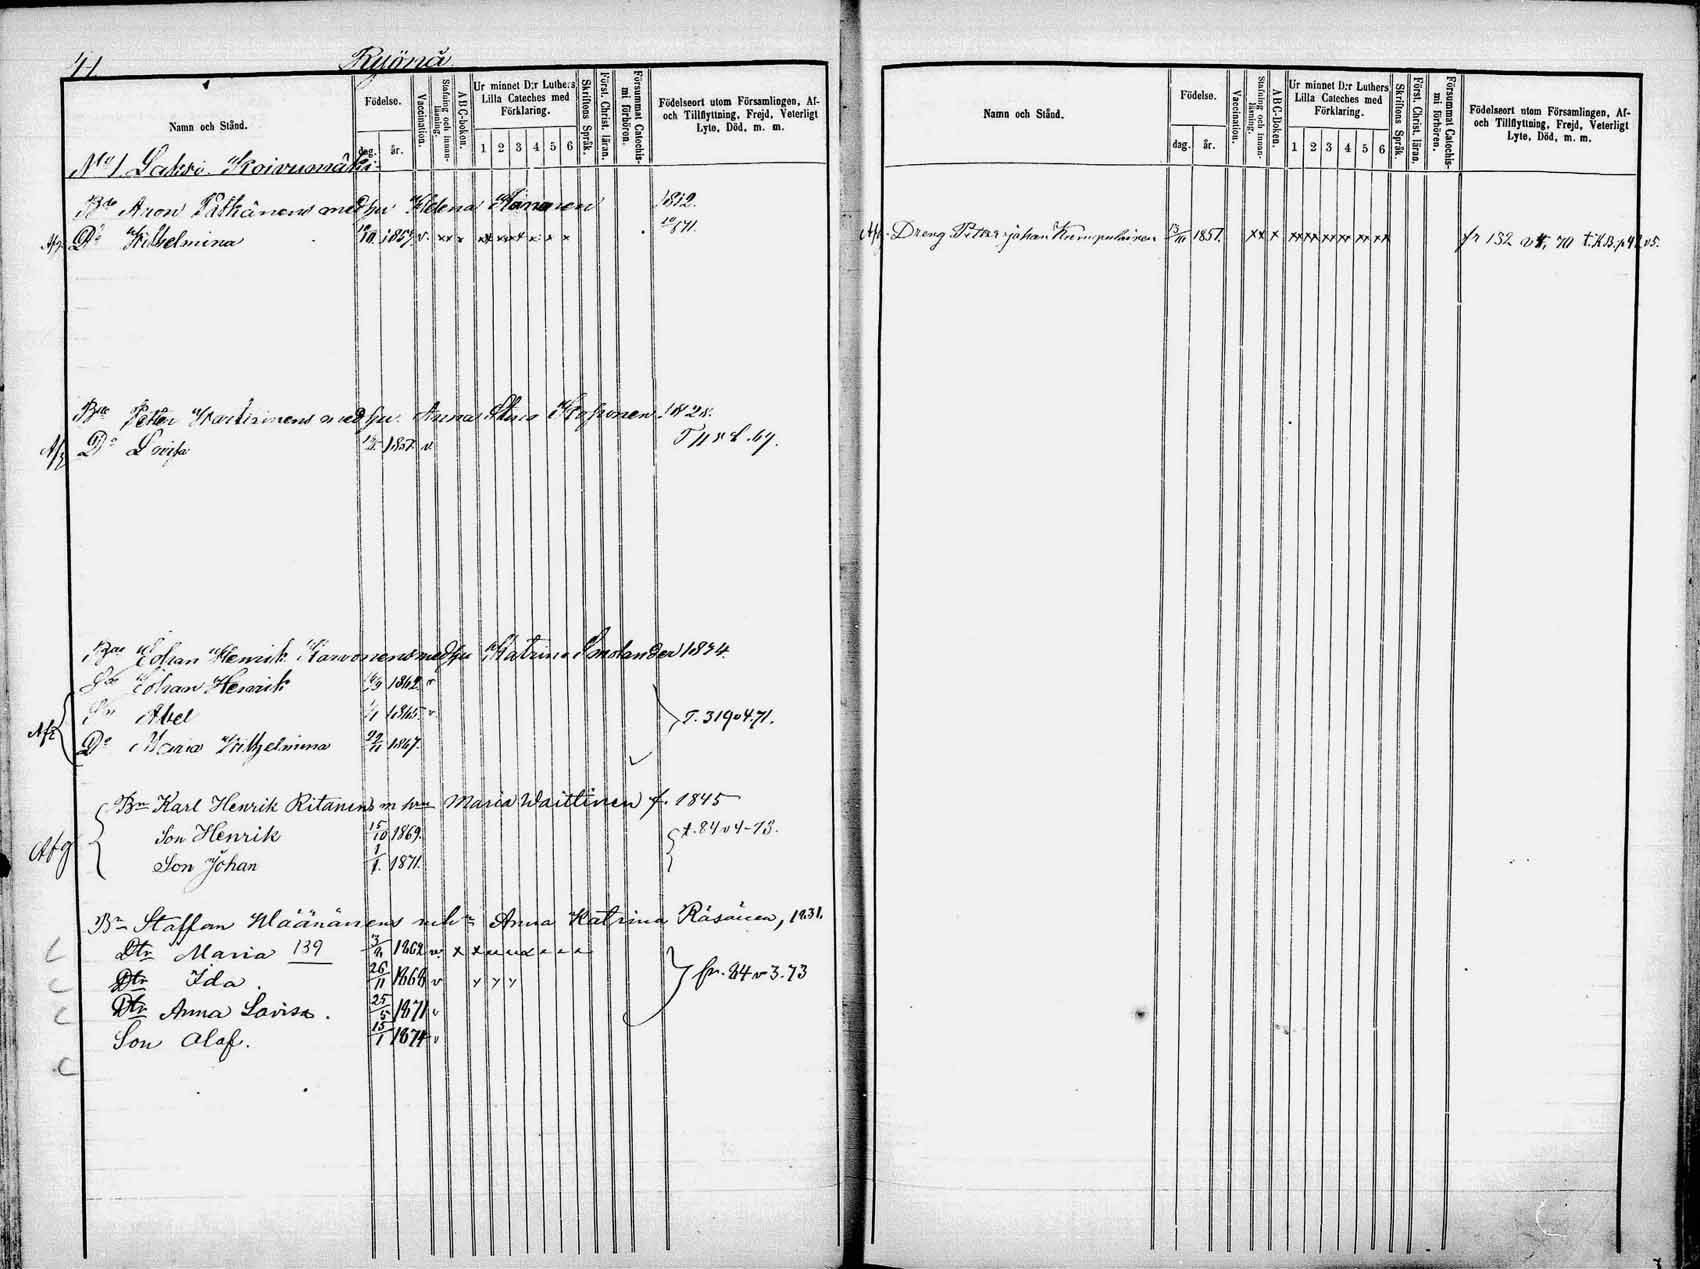 41 Ryönä
Namn och Stånd.
Födelse.
dag. år.
Vaccination.
Stafning och innan-läsning.
ABC-boken.
Ur minnet D:r Luthers Lilla Cateches med Förklaring.
1 2 3 4 5 6
Skriftens Språk.
Först. Christ. läran.
Försummat Catechis-mi förhören.
Födelseort utom Församlingen, Af- och Tillflyttning, Frejd, Veterligt Lyte, Död, m. m.
No 1 Sakri Koivumäki
Aron med hu Helena 1812.
Afg. Do Wilhelmina 1857. v.
Peter med hu. Anna Stina 1828.
Afg Do Lovisa 1857. v.
Johan Henrik Karvonens med hu Katrina Smolander 1834.
Johan Henrik 1862. v
Abel 1865. v. T. 319 v 4. 71.
Afg Do Maria Wilhelmina 1867.
Bn Karl Henrik Ritanens m hu Maria Waittinen f. 1845
Son Henrik 15/10 1869. t. 84 v 4-73.
Afg Son Johan 1/1. 1871.
Bn Staffan Määnänens mhn Anna Katrina Räsänen, 1831.
Dtr Maria 139 1862 v.
Dtr Ida. 26/11 1868 v fr. 84 v 3. 73
Dtr Anna Lovisa. 25/5 1871 v
Son Olaf. 15/1 1874 v
Namn och Stånd.
Födelse.
dag. år.
Vaccination.
Stafning och innan-läsning.
ABC-Boken.
Ur minnet D:r Luthers Lilla Cateches med Förklaring.
1 2 3 4 5 6
Skriftens Språk.
Först. Christ. läran.
Försummat Catechis-mi förhören.
Födelseort utom Församlingen, Af- och Tillflyttning, Frejd, Veterligt Lyte, Död, m. m.
Dreng Petter Johan Kumpulainen 1851. fr 132